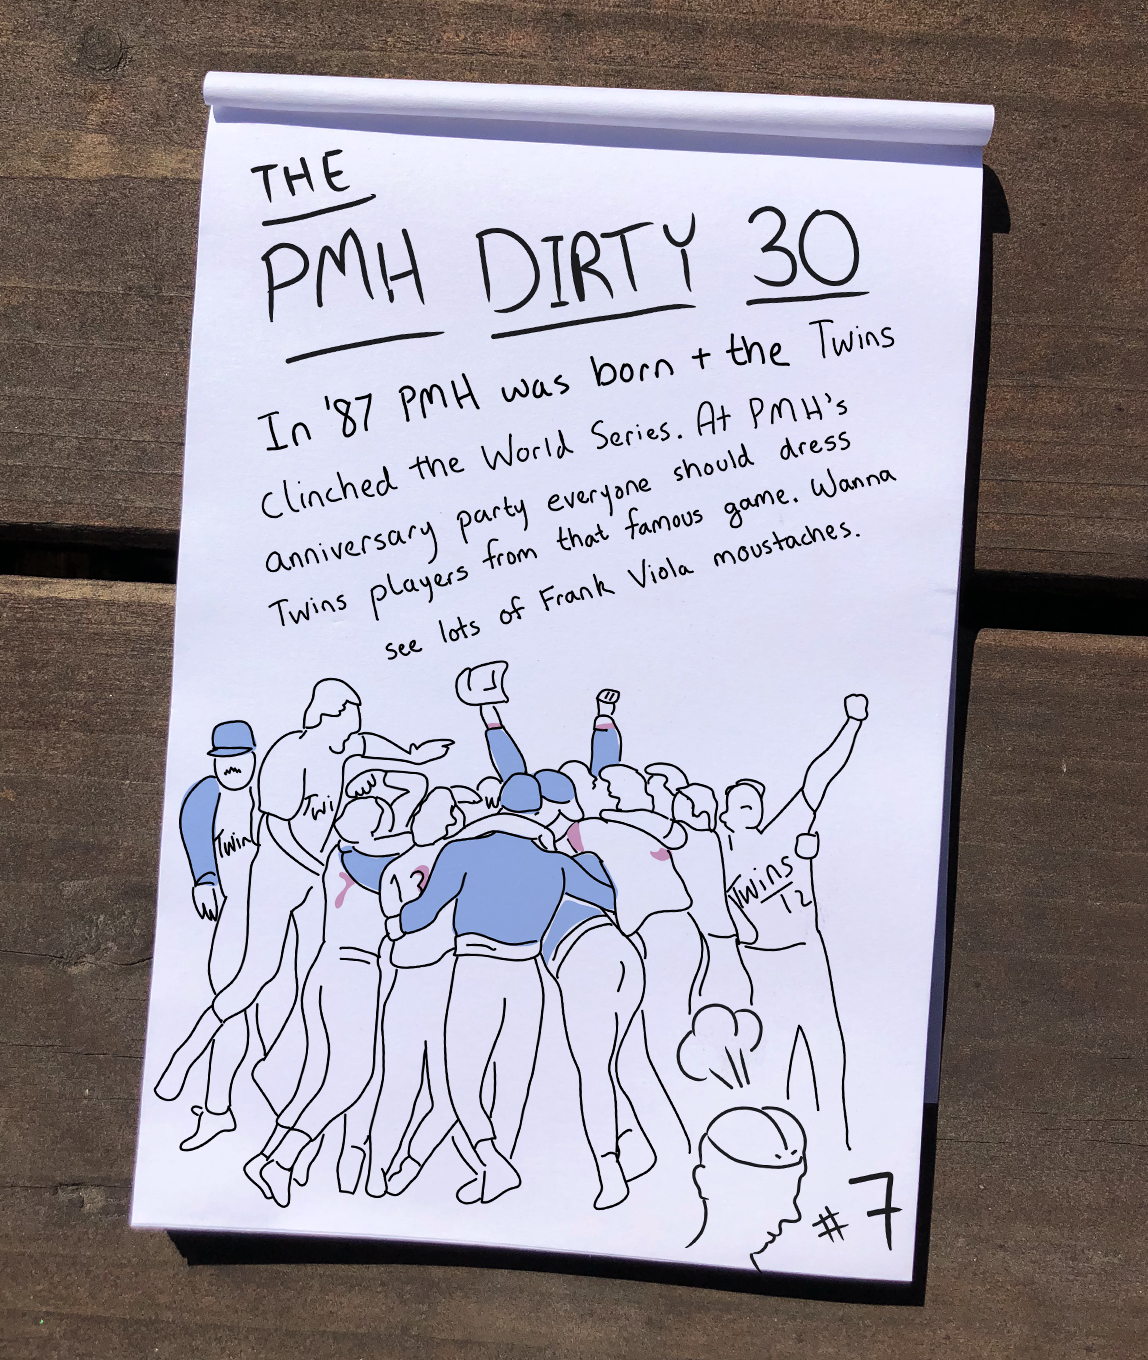 THE
PMH DIRTY 30
In '87 PMH was born + the Twins
clinched the World Series. At PMH's
anniversary party everyone should dress
Twins players from that famous game. Wanna
see lots of Frank Viola moustaches.
Twin
Twi
13
Twins
12
#7